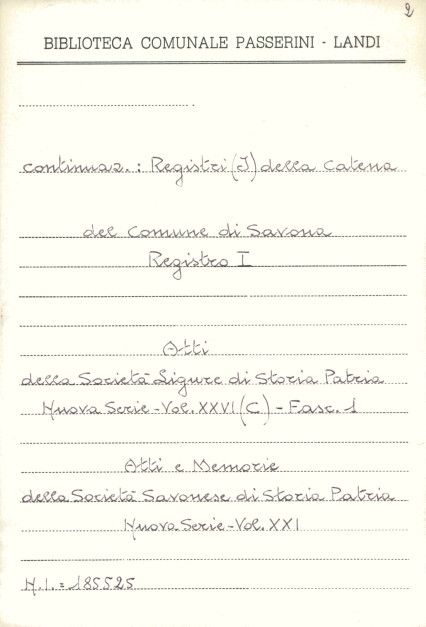 2
BIBLIOTECA COMUNALE PASSERINI - LANDI
continuaz. : Registri (I) della Catena
del Comune di Savona
Registro I
Atti
della Società Ligure di Storia Patria
Nuova Serie - Vol. XXVI (C) - Fasc. 1
Atti e Memorie
della Società Savonese di Storia Patria
Nuova Serie - Vol. XXI
N.I. = 185525